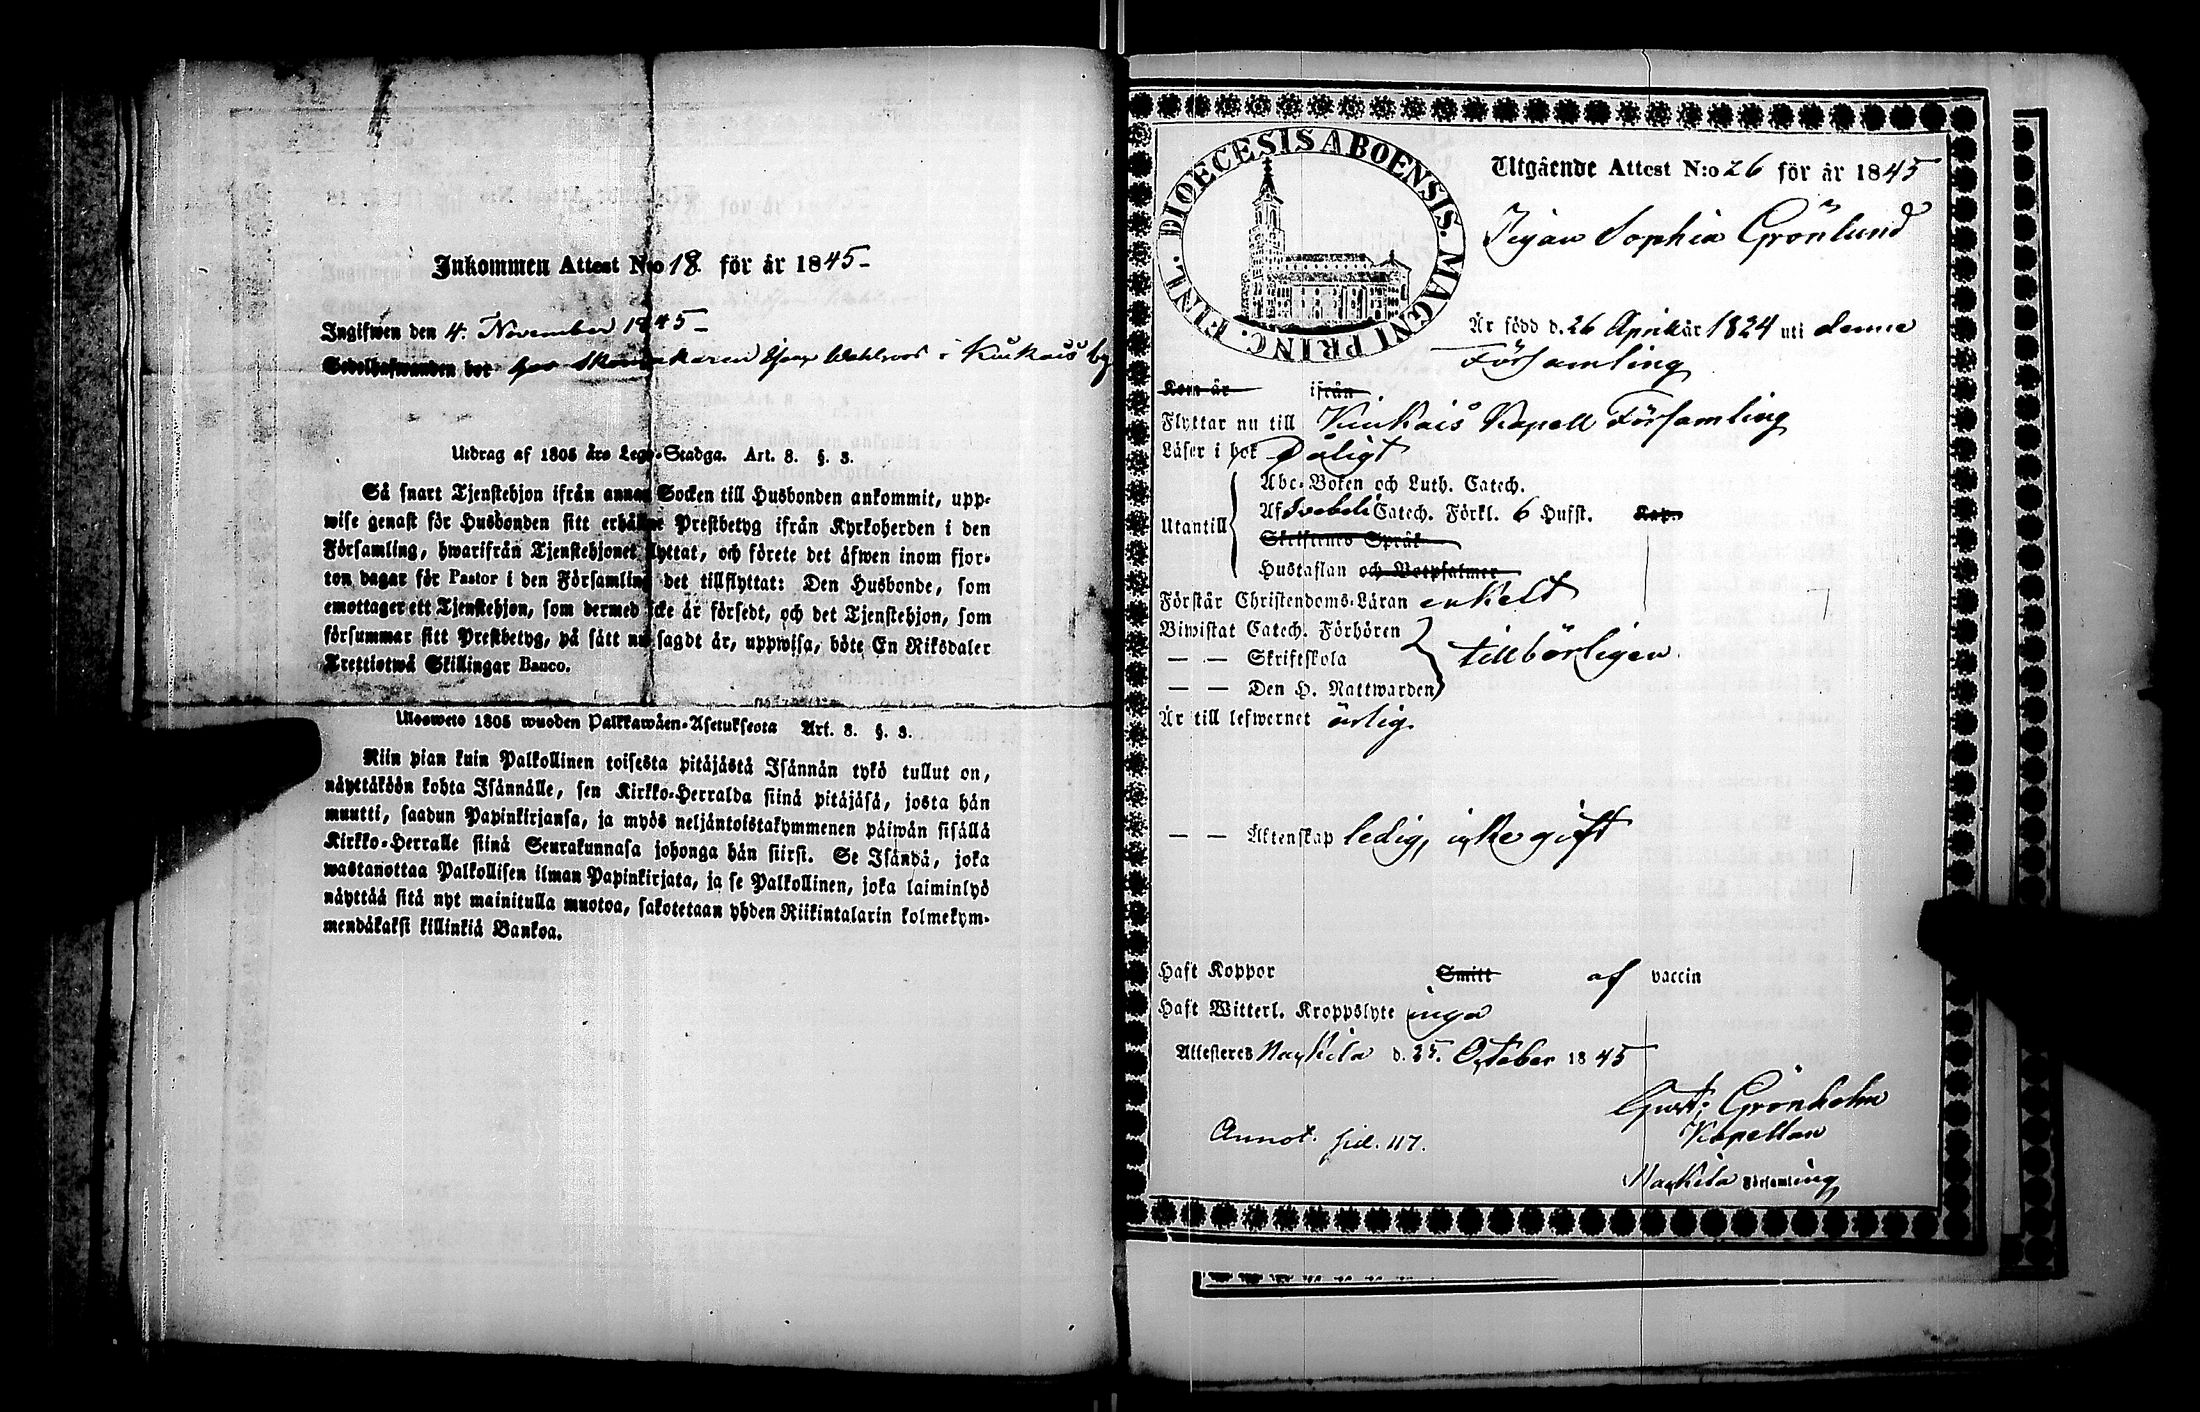 Inkommen Attest N:o 18. för år 1845-
Ingifwen den 4. November 1845-
Sedelhafwanden bor hos Skomakaren i Kiukais by
Utdrag af 1805 års Lego-Stadga. Art. 8. §. 3.
Så snart Tjenstehjon ifrån annan Socken till Husbonden ankommit, upp-
wise genast för Husbonden sitt erhållne Prestbetyg ifrån Kyrkoherden i den
Församling, hwarifrån Tjenstehjonet flyttat, och förete det äfwen inom fjor-
ton dagar för Pastor i den Församling det tillflyttat: Den Husbonde, som
emottager ett Tjenstehjon, som dermed icke är försedt, och det Tjenstehjon, som
försummar sitt Prestbetyg, på sätt nu sagdt är, uppwisa, böte En Riksdaler
Trettiotwå Skillingar Banco.
Ulosweto 1805 wuoden Palkkawäen-Asetuksesta Art. 8. §. 3.
Niin pian kuin Palkollinen toisesta pitäjästä Isännän tykö tullut on,
näyttäköön kohta Isännälle, sen Kirkko-Herralda siinä pitäjäsä, josta hän
muutti, saadun Papinkirjansa, ja myös neljäntoistakymmenen päiwän sisällä
Kirkko-Herralle siinä Seurakunnasa johonga hän siirsi. Se Isändä, joka
wastanottaa Palkollisen ilman Papinkirjata, ja se Palkollinen, joka laiminlyö
näyttää sitä nyt mainitulla muotoa, sakotetaan yhden Riikintalarin kolmekym-
mendäkaksi killinkiä Bankoa.
DIOECESIS ABOENSIS. MAGNI PRINC. FINL.
Utgående Attest N:o 26 för år 1845
Pigan Sophia Grönlund
Är född d. 26 April år 1824 uti denne
Församling
Kom år ifrån
Flyttar nu till Kiukais Kapell Församling
Läser i bok Dåligt
Utantill
Abc-Boken och Luth. Catech.
Af Svebeli Catech. Förkl. 6 Hufst. Kap.
Skriftenes Språk
Hustaflan och Botpsalmer
Förstår Christendoms-Läran enkelt
Biwistat Catech. Förhören
— — Skriftskola tillbörligen
— — Den H. Nattwarden
Är till lefwernet ärlig.
— — Äktenskap ledig, icke gift
Haft Koppor Smitt af vaccin
Haft Witterl. Kroppslyte inga
Attesteres Nakkila d. 25. October 1845
Gust: Grönholm
Kapellan
Nakkila Församling
Annot. sid. 117.